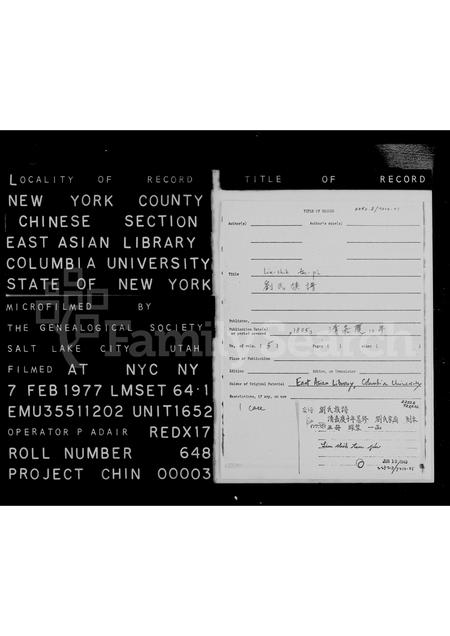 LOCALITY OF RECORD
NEW YORK COUNTY
CHINESE SECTION
EAST ASIAN LIBRARY
COLUMBIA UNIVERSITY
STATE OF NEW YORK
MICROFILMED BY
THE GENEALOGICAL SOCIETY
SALT LAKE CITY UTAH
FILMED AT NYC NY
7 FEB 1977 LMSET 64·1
EMU35511202 UNIT1652
OPERATOR P ADAIR REDX17
ROLL NUMBER 648
PROJECT CHIN 00003
TITLE OF RECORD
TITLE OF RECORD
Author(s)
Author's date(s)
Title
劉氏族譜
Publisher
Publication Date(s)
or period covered 1805 清嘉慶10年
No. of vols. ( 5 ) Pages ( ) Other ( )
Place of Publication
Edition Edition, or Translator
Holder of Original Material East Asian Library, Columbia University
Annotations, if any, on row
1 case
劉氏族譜
一函
JUN
FamilySearch